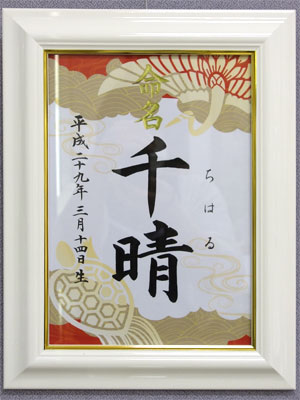 命名
千晴
ちはる
平成二十九年三月十四日生